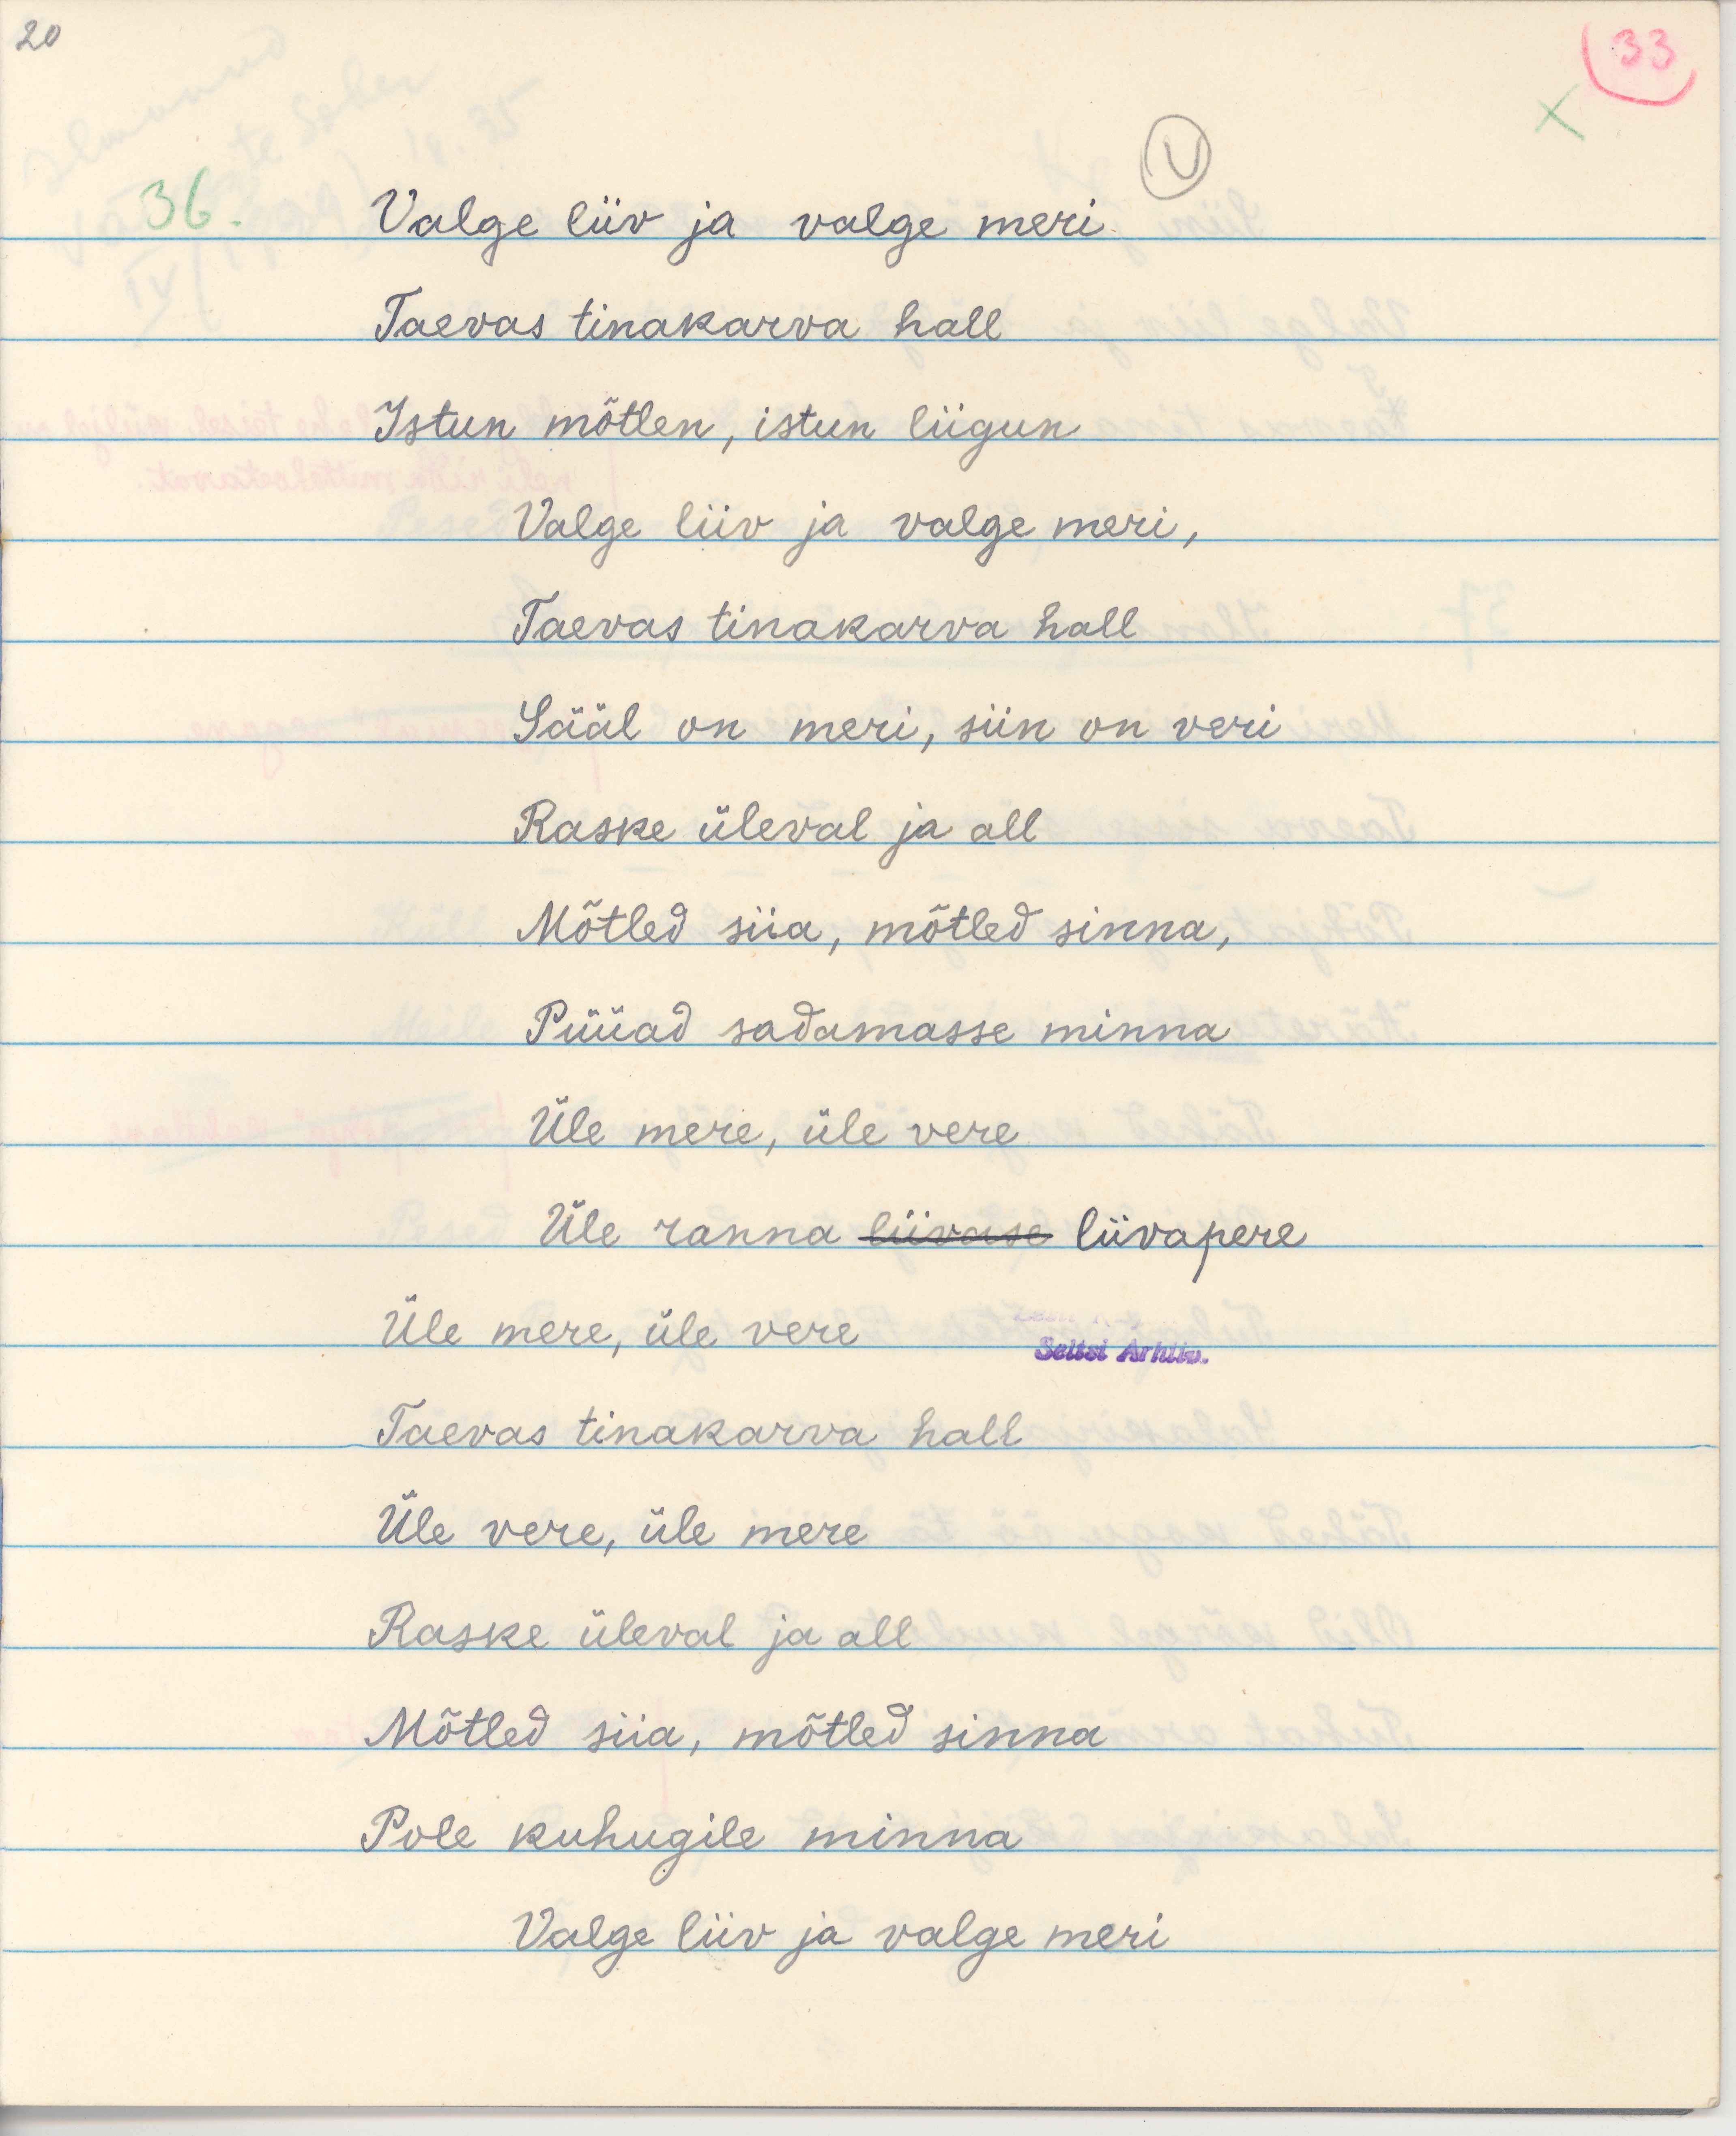 20
33
36.
Valge liiv ja valge meri
Taevas tinakarva hall
Istun mõtlen, istun liigun
Valge liiv ja valge meri,
Taevas tinakarva hall
Sääl on meri, siin on veri
Raske üleval ja all
Mõtled siia, mõtled sinna,
Püüad sadamasse minna
Üle mere, üle vere
Üle ranna liivase liivapere
Üle mere, üle vere
Seltsi Arhiiv.
Taevas tinakarva hall
Üle vere, üle mere
Raske üleval ja all
Mõtled siia, mõtled sinna
Pole kuhugile minna
Valge liiv ja valge meri